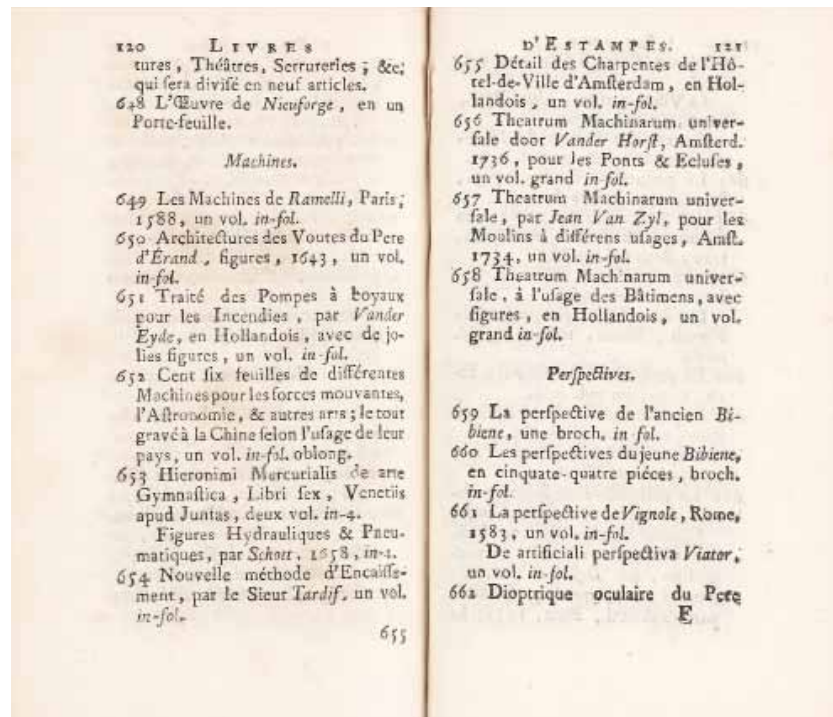 120 LIVRES
tures, Théâtres, Serrureries ; &c;
qui ſera diviſé en neuf articles.
648 L'Œuvre de Nieuforge, en un
Porte-feuille.
Machines.
649 Les Machines de Ramelli, Paris,
1588, un vol. in-fol.
650 Architectures des Voutes du Pere
d'Érand, figures, 1643, un vol.
in-fol.
651 Traité des Pompes à boyaux
pour les Incendies, par Vander
Eyde, en Hollandois, avec de jo-
lies figures, un vol. in-fol.
652 Cent ſix feuilles de différentes
Machines pour les forces mouvantes,
l'Aſtronomie, & autres arts ; le tout
gravé à la Chine ſelon l'uſage de leur
pays, un vol. in-fol. oblong.
653 Hieronimi Mercurialis de arte
Gymnaſtica, Libri ſex, Venetiis
apud Juntas, deux vol. in-4.
Figures Hydrauliques & Pneu-
matiques, par Schott, 1658, in-4.
654 Nouvelle méthode d'Encaiſſe-
ment, par le Sieur Tardif, un vol.
in-fol.
655
D'ESTAMPES. 121
655 Détail des Charpentes de l'Hô-
tel-de-Ville d'Amſterdam, en Hol-
landois, un vol. in-fol.
656 Theatrum Machinarum univer-
ſale door Vander Horſt, Amſterd.
1736, pour les Ponts & Ecluſes,
un vol. grand in fol.
657 Theatrum Machinarum univer-
ſale, par Jean Van Zyl, pour les
Moulins à différens uſages, Amſt.
1734, un vol. in-fol.
658 Theatrum Machinarum univer-
ſale, à l'uſage des Bâtimens, avec
figures, en Hollandois, un vol.
grand in-fol.
Perſpectives.
659 La perſpective de l'ancien Bi-
biene, une broch. in fol.
660 Les perſpectives du jeune Bibiene,
en cinquate-quatre piéces, broch.
in-fol.
661 La perſpective de Vignole, Rome,
1583, un vol. in-fol.
De artificiali perſpectiva Viator,
un vol. in-fol.
662 Dioptrique oculaire du Pere
E